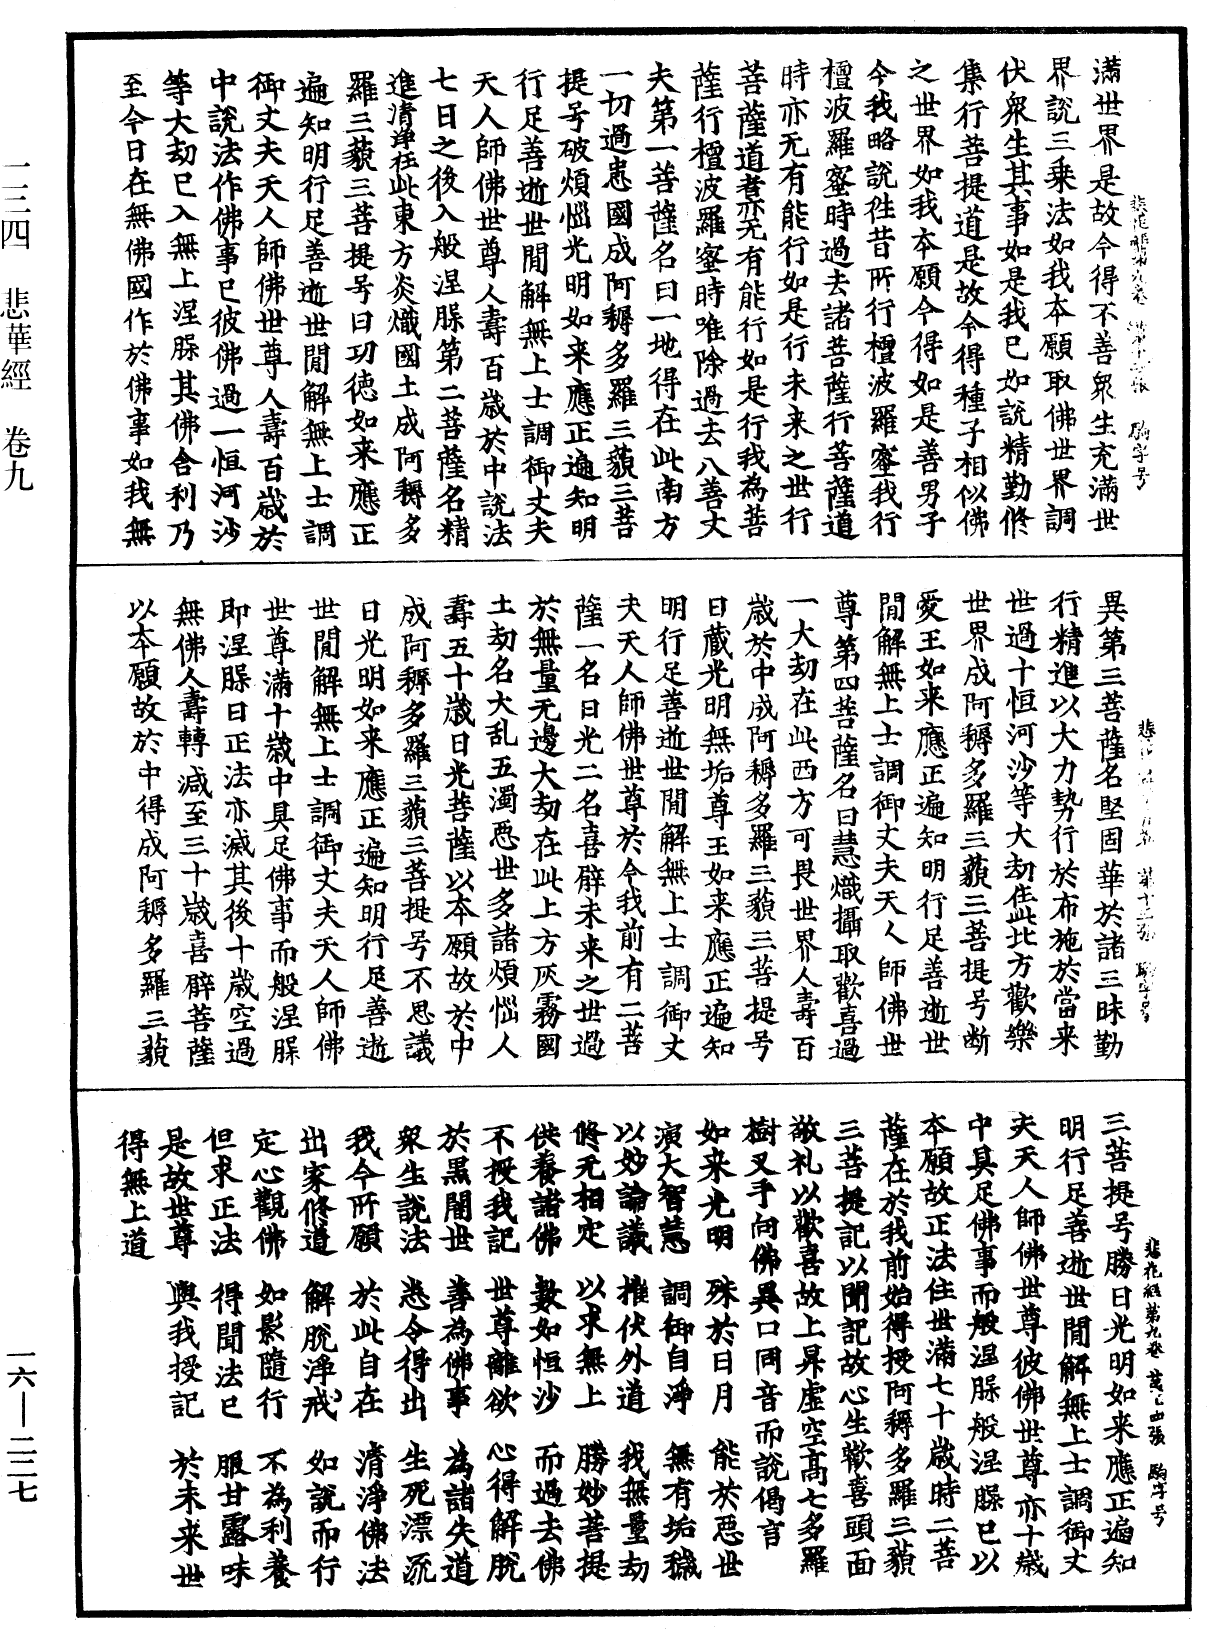 滿世界是故今得不善衆生充滿世
界說三乗法如我本願取佛世界調
伏衆生其事如是我已如說精勤修
集行菩提道是故今得種子相似佛
之世界如我本願今得如是善男子
今我略說往昔所行檀波羅蜜我行
檀波羅蜜時過去諸菩薩行菩薩道
時亦无有能行如是行未来之世行
菩薩道者亦无有能行如是行我為菩
薩行檀波羅蜜時唯除過去八善丈
夫第一菩薩名曰一地得在此南方
一切過患國成阿耨多羅三藐三菩
提号破煩惱光明如来應正遍知明
行足善逝世閒解無上士調御丈夫
天人師佛世尊人壽百歲於中說法
七日之後入般涅槃第二菩薩名精
進清淨在此東方炎熾國土成阿耨多
羅三藐三菩提号曰功徳如来應正
遍知明行足善逝世閒解無上士調
御丈夫天人師佛世尊人壽百歲於
中說法作佛事已彼佛過一恒河沙
等大劫已入無上涅槃其佛舍利乃
至今日在無佛國作於佛事如我無
異第三菩薩名堅固華於諸三昧勤
行精進以大力勢行於布施於當来
世過十恒河沙等大劫在此北方歡樂
世界成阿耨多羅三藐三菩提号断
愛王如来應正遍知明行足善逝世
閒解無上士調御丈夫天人師佛世
尊第四菩薩名曰慧熾攝取歡喜過
一大劫在此西方可畏世界人壽百
歲於中成阿耨多羅三藐三菩提号
日藏光明無垢尊王如来應正遍知
明行足善逝世閒解無上士調御丈
夫天人師佛世尊於今我前有二菩
薩一名日光二名喜臂未来之世過
於無量无邊大劫在此上方灰霧國
土劫名大乱五濁惡世多諸煩惱人
壽五十歲日光菩薩以本願故於中
成阿耨多羅三藐三菩提号不思議
日光明如来應正遍知明行足善逝
世閒解無上士調御丈夫天人師佛
世尊滿十歲中具足佛事而般涅槃
即涅槃日正法亦滅其後十歲空過
無佛人壽轉減至三十歲喜臂菩薩
以本願故於中得成阿耨多羅三藐
三菩提号勝日光明如来應正遍知
明行足善逝世閒解無上士調御丈
夫天人師佛世尊彼佛世尊亦十歲
中具足佛事而般涅槃般涅槃已以
本願故正法住世滿七十歲時二菩
薩在於我前始得授阿耨多羅三藐
三菩提記以聞記故心生歡喜頭面
敬礼以歡喜故上昇虛空高七多羅
樹叉手向佛異口同音而說偈言
如来光明　殊於日月　能於惡世
演大智慧　調御自淨　無有垢穢
以妙論議　摧伏外道　我無量劫
修无相定　以求無上　勝妙菩提
供養諸佛　數如恒沙　而過去佛
不授我記　世尊離欲　心得解脫
於黑闇世　善為佛事　為諸失道
衆生說法　悉令得出　生死漂流
我今所願　於此自在　清淨佛法
出家修道　解脫淨戒　如說而行
定心觀佛　如影隨行　不為利養
但求正法　得聞法已　服甘露味
是故世尊　與我授記　於未来世
得無上道
悲花經第九卷
一三四　悲華經　卷九
一六—二二七